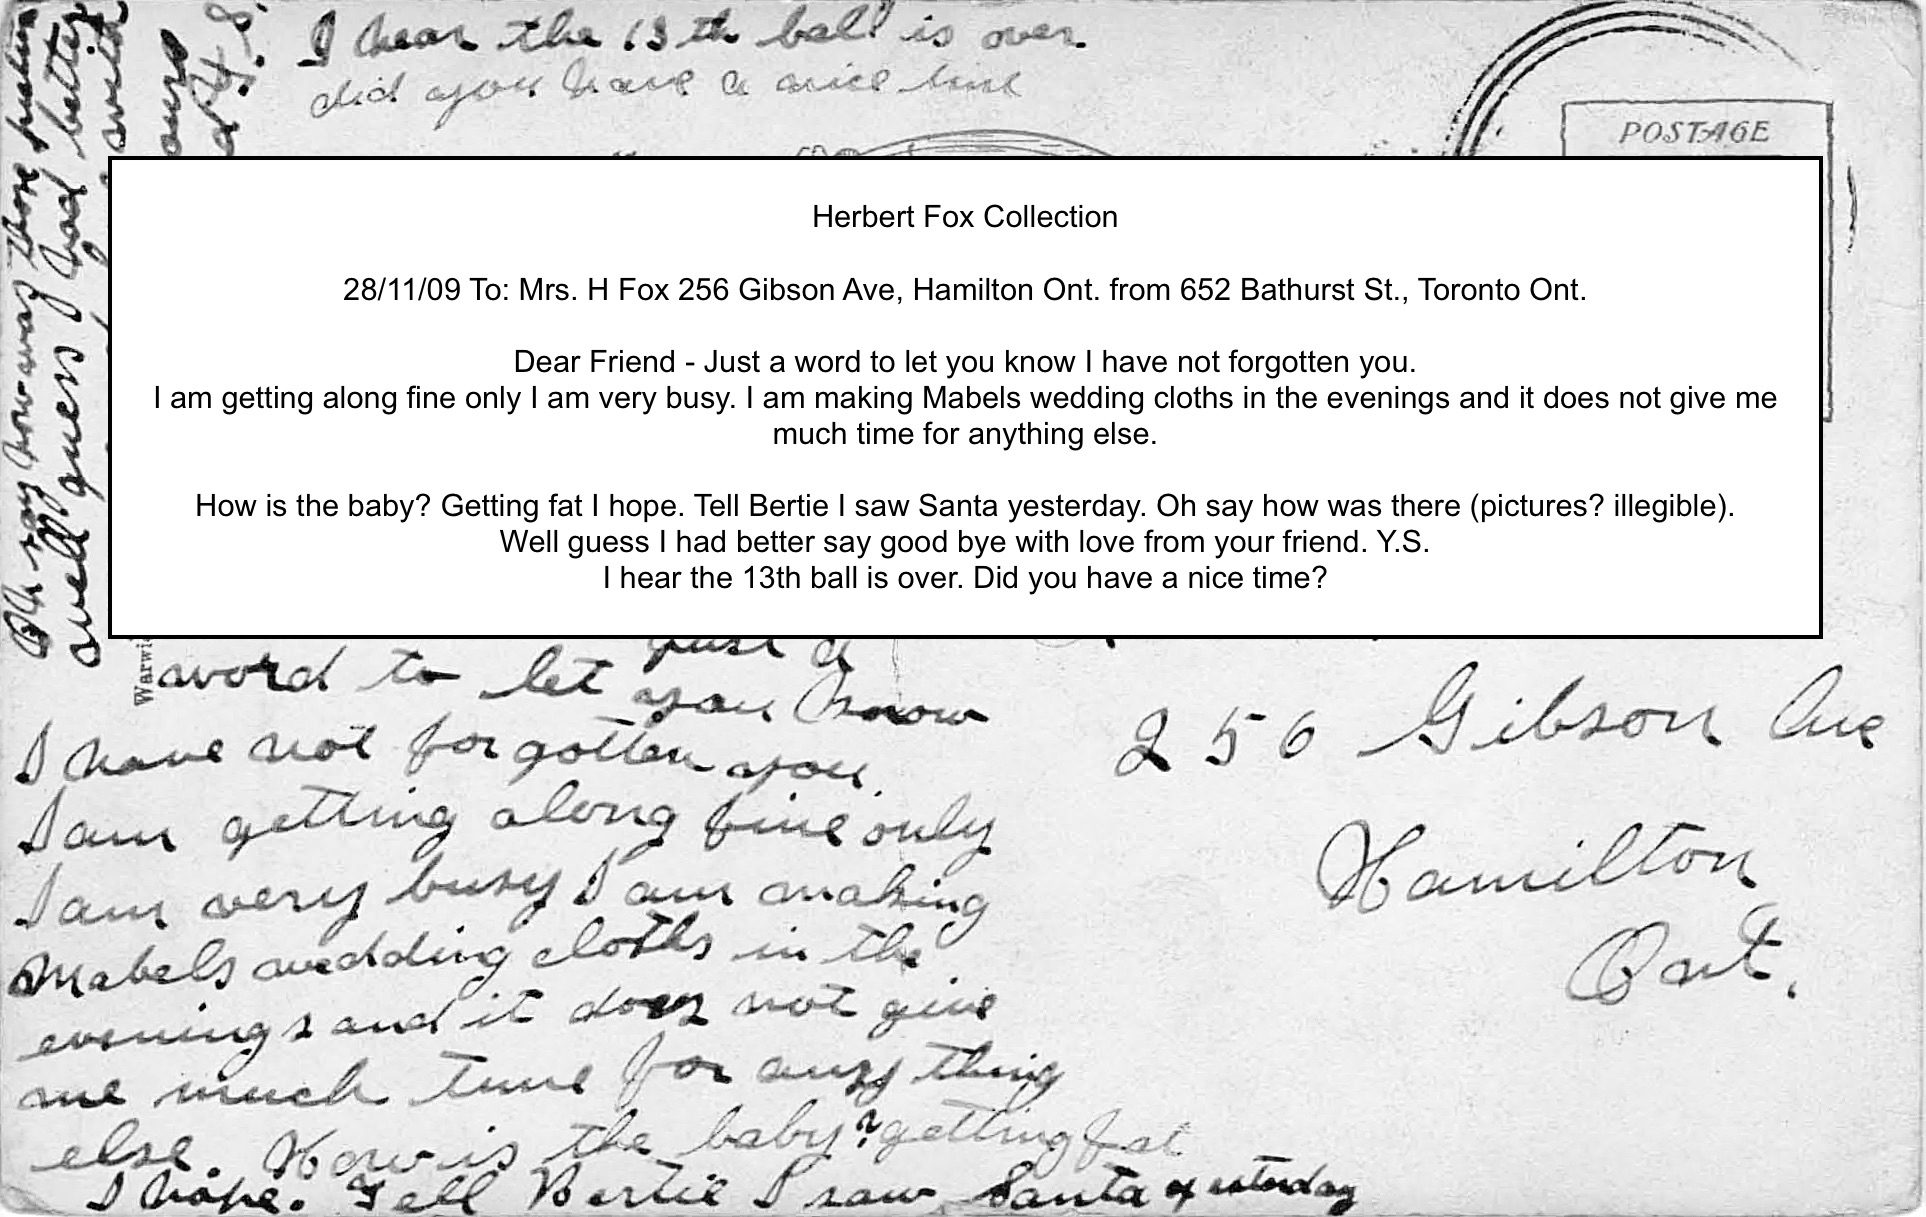 I hear the 13th ball is over
did you have a nice time
POSTAGE
Herbert Fox Collection
28/11/09 To: Mrs. H Fox 256 Gibson Ave, Hamilton Ont. from 652 Bathurst St., Toronto Ont.
Dear Friend - Just a word to let you know I have not forgotten you.
I am getting along fine only I am very busy. I am making Mabels wedding cloths in the evenings and it does not give me
much time for anything else.
How is the baby? Getting fat I hope. Tell Bertie I saw Santa yesterday. Oh say how was there (pictures? illegible).
Well guess I had better say good bye with love from your friend. Y.S.
I hear the 13th ball is over. Did you have a nice time?
Oh say how was those
well guess I had better
with
Warwi
just a
word to let you know
I have not forgotten you.
I am getting along fine only
I am very busy I am making
Mabels wedding cloths in the
evenings and it does not give
me much time for any thing
else. How is the baby? getting fat
I hope. Tell Bertie I saw Santa yesterday
256 Gibson Ave
Hamilton
Ont.